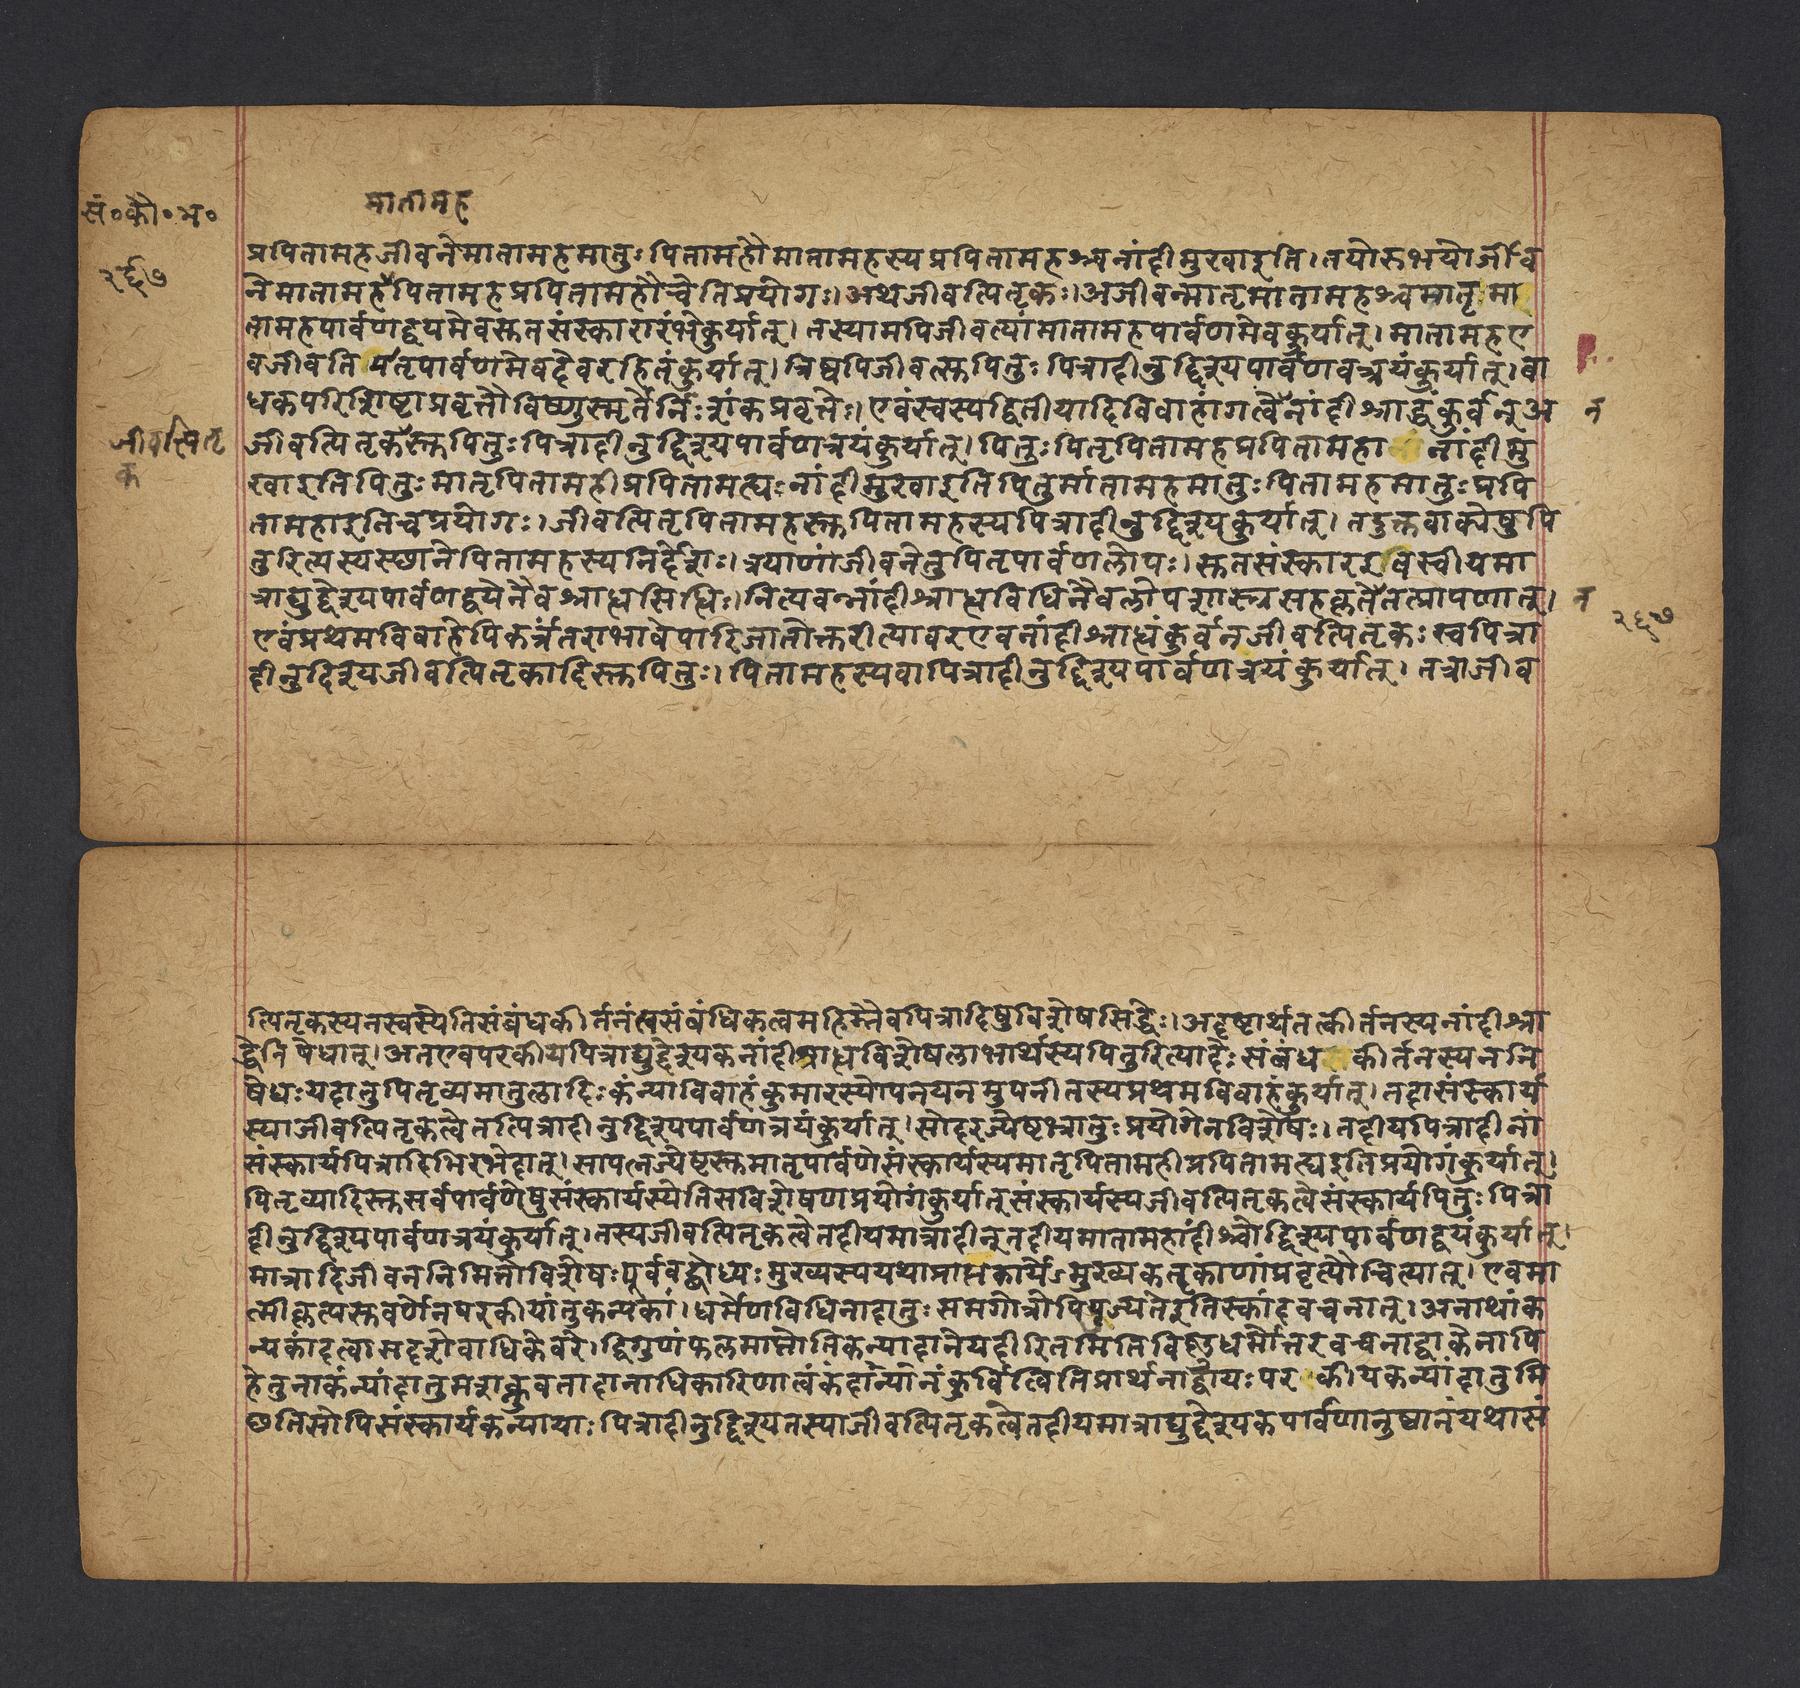 मातामह
सं॰कौ॰प्र॰
२६७
प्रपितामहजीवनेमातामहमातुःपितामहौमातामहस्यप्रपितामहश्चनांदीमुखाइति।तयोरुभयोर्जीव
नेमातामहपितामहप्रपितामहौचेतिप्रयोगः।अथजीवत्पितृकः।अजीवन्मातृमातामहश्चमातृमा
तामहपार्वणद्वयमेवसुतसंस्कारारंभेकुर्यात्।तस्यामपिजीवत्यांमातामहपार्वणमेवकुर्यात्।मातामहए
वजीवतिमातृपार्वणमेवदैवरहितंकुर्यात्।त्रिष्वपिजीवत्सुपितुःपित्रादीनुद्दिश्यपार्वणत्रयंकुर्यात्।बा
एवंस्वस्यद्वितीयादिविवाहांगत्वेनांदीश्राद्धंकुर्वन्अ
न
जीवत्पितृ
क
जीवत्पितृकस्तुपितुःपित्रादीनुद्दिश्यपार्वणत्रयंकुर्यात्।पितुःपितृपितामहप्रपितामहा नांदीमु
खाइतिपितुःमातृपितामहीप्रपितामह्यःनांदीमुखाइतिपितुर्मातामहमातुःपितामहमातुःप्रपि
तामहाइतिचप्रयोगः।जीवत्पितृपितामहस्तुपितामहस्यपित्रादीनुद्दिश्यकुर्यात्।तदुक्तवाक्येषुपि
तुरित्यस्यस्थानेपितामहस्यनिर्देशः।त्रयाणांजीवनेतुपितृपार्वणलोपः।सुतसंस्कारइवस्वीयमा
त्राद्युद्देश्यपार्वणद्वयेनैवश्राद्धसिद्धिः।नित्यवन्नांदीश्राद्धविधिनैव
न
२६७
एवंप्रथमविवाहेपिकर्त्रंतराभावेपारिजातोक्तरीत्यावरएवनांदीश्राद्धंकुर्वन्जीवत्पितृकःस्वपित्रा
दीनुद्दिश्यजीवत्पितृकादिस्तुपितुः।पितामहस्यवापित्रादीनुद्दिश्यपार्वणत्रयंकुर्यात्।तत्राजीव
त्पितृकस्यनस्वस्येतिसंबंधकीर्तनंस्वसंबंधिकत्वमहिम्नैवपित्रादिषुविशेषसिद्धेः।अदृष्टार्थतत्कीर्तनस्यनांदीश्रा
द्धेनिषेधात्।अतएवपरकीयपित्राद्युद्देश्यकनांदीश्राद्धेविशेषलाभार्थस्यपितुरित्यादेःसंबंध कीर्तनस्यननि
षेधःयदातुपितृव्यमातुलादिःकन्याविवाहंकुमारस्योपनयनमुपनीतस्यप्रथमविवाहंकुर्यात्।तदासंस्कार्य
स्याजीवत्पितृकत्वेतत्पित्रादीनुद्दिश्यपार्वणत्रयंकुर्यात्।सोदरज्येष्ठभ्रातुःप्रयोगेनविशेषः।तदीयपित्रादीनां
संस्कार्यपित्रादिभिरभेदात्।सापत्नज्येष्ठस्तुमातृपार्वणेसंस्कार्यस्यमातृपितामहीप्रपितामह्यइतिप्रयोगंकुर्यात्।
पितृव्यादिस्तुसर्वपार्वणेषुसंस्कार्यस्येतिसविशेषणप्रयोगंकुर्यात्संस्कार्यस्यजीवत्पितृकत्वेसंस्कार्यपितुःपित्रा
दीनुद्दिश्यपार्वणत्रयंकुर्यात्।तस्यजीवत्पितृकत्वेतदीयमात्रादीन्तदीयमातामहादींश्चोद्दिश्यपार्वणद्वयंकुर्यात्।
मात्रादिजीवननिमित्तोविशेषःपूर्ववद्बोध्यःमुख्यस्ययथाप्राप्तकार्येमुख्यकर्तृकाणांप्रवृत्त्यौचित्यात्।एवमा
त्मीकृत्यसुवर्णेनपरकीयांतुकन्यकां।धर्मेणविधिनादातुःसमगोत्रोपियुज्यतेइतिस्कांदवचनात्।अनाथांक
न्यकांदत्वासदृशेवाधिकेवरे।द्विगुणंफलमाप्नोतिकन्यादानेयदीरितमितिविष्णुधर्मोत्तरवचनाद्वाकेनापि
हेतुनाकन्यांदातुमशक्नुवतादानाधिकारिणात्वंकन्यादानंकुर्वितिप्रार्थनाद्वायःपरकीयकन्यांदातुमि
च्छतिसोपिसंस्कार्यकन्यायाःपित्रादीनुद्दिश्यतस्याजीवत्पितृकत्वेतदीयमात्राद्युद्देश्यकपार्वणानुष्ठानंयथासं